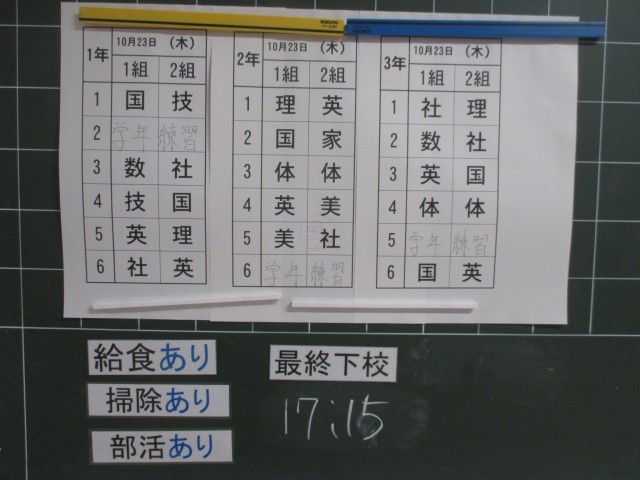 1年 10月23日 (木)
1組 2組
1 国 技
2 学年 練習
3 数 社
4 技 国
5 英 理
6 社 英
2年 10月23日 (木)
1組 2組
1 理 英
2 国 家
3 体 体
4 英 美
5 美 社
6 学年 練習
3年 10月23日 (木)
1組 2組
1 社 理
2 数 社
3 英 国
4 体 体
5 学年 練習
6 国 英
給食あり
掃除あり
部活あり
最終下校
17:15